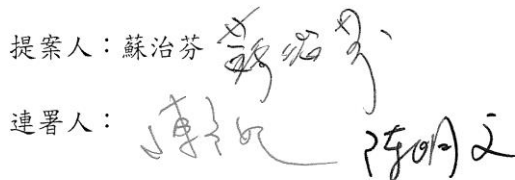 提案人：蘇治芬 蘇治芬
連署人：陳明文